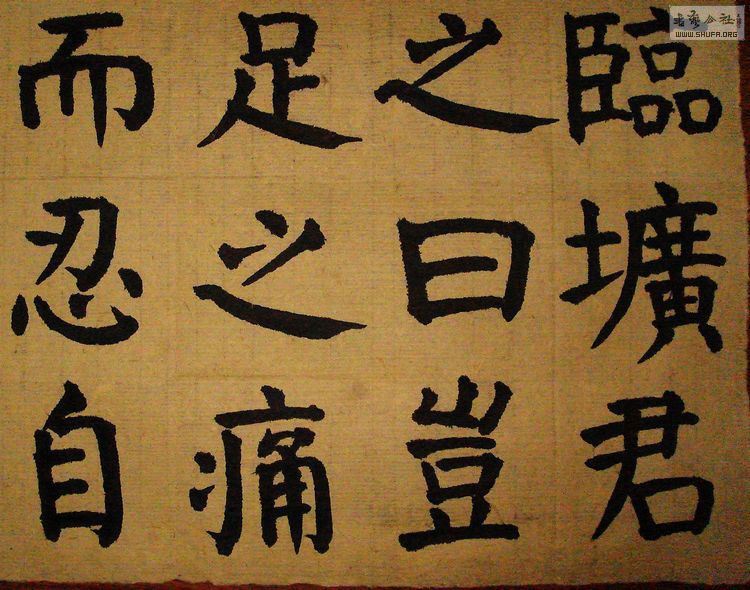 臨壙君
之曰豈
足之痛
而忍自
WWW.SHUFA.ORG